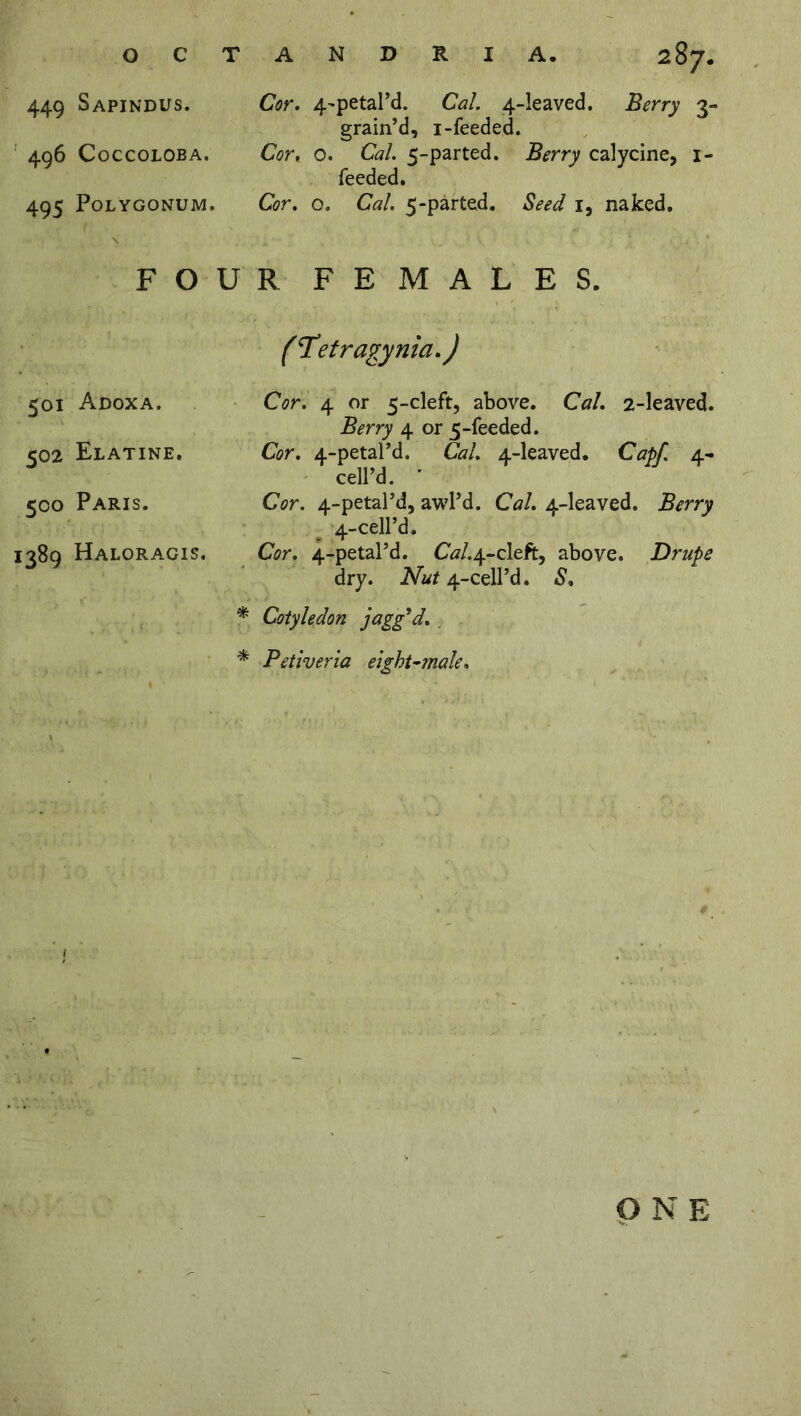 OCTANDRIA. 287.
449 SAPINDUS. Cor. 4-petal'd. Cal. 4-leaved. Berry 3-
grain'd, 1-ſeeded.
496 COCCOLOBA. Cor. 0. Cal. 5-parted. Berry calycine, 1-
ſeeded.
495 POLYGONUM. Cor. 0. Cal. 5-parted. Seed 1, naked.
FOUR FEMALES.
(Tetragynia.)
501 ADOXA. Cor. 4 or 5-cleft, above. Cal. 2-leaved.
Berry 4 or 5-ſeeded.
502 ELATINE. Cor. 4-petal'd. Cal. 4-leaved. Capſ. 4-
cell'd.
500 PARIS. Cor. 4-petal'd, awl'd. Cal. 4-leaved. Berry
4-cell'd.
1389 HALORAGIS. Cor. 4-petal'd. Cal. 4-cleft, above. Drupe
dry. Nut 4-cell'd. S.
* Cotyledon jagg'd.
* Petiveria eight-male.
ONE